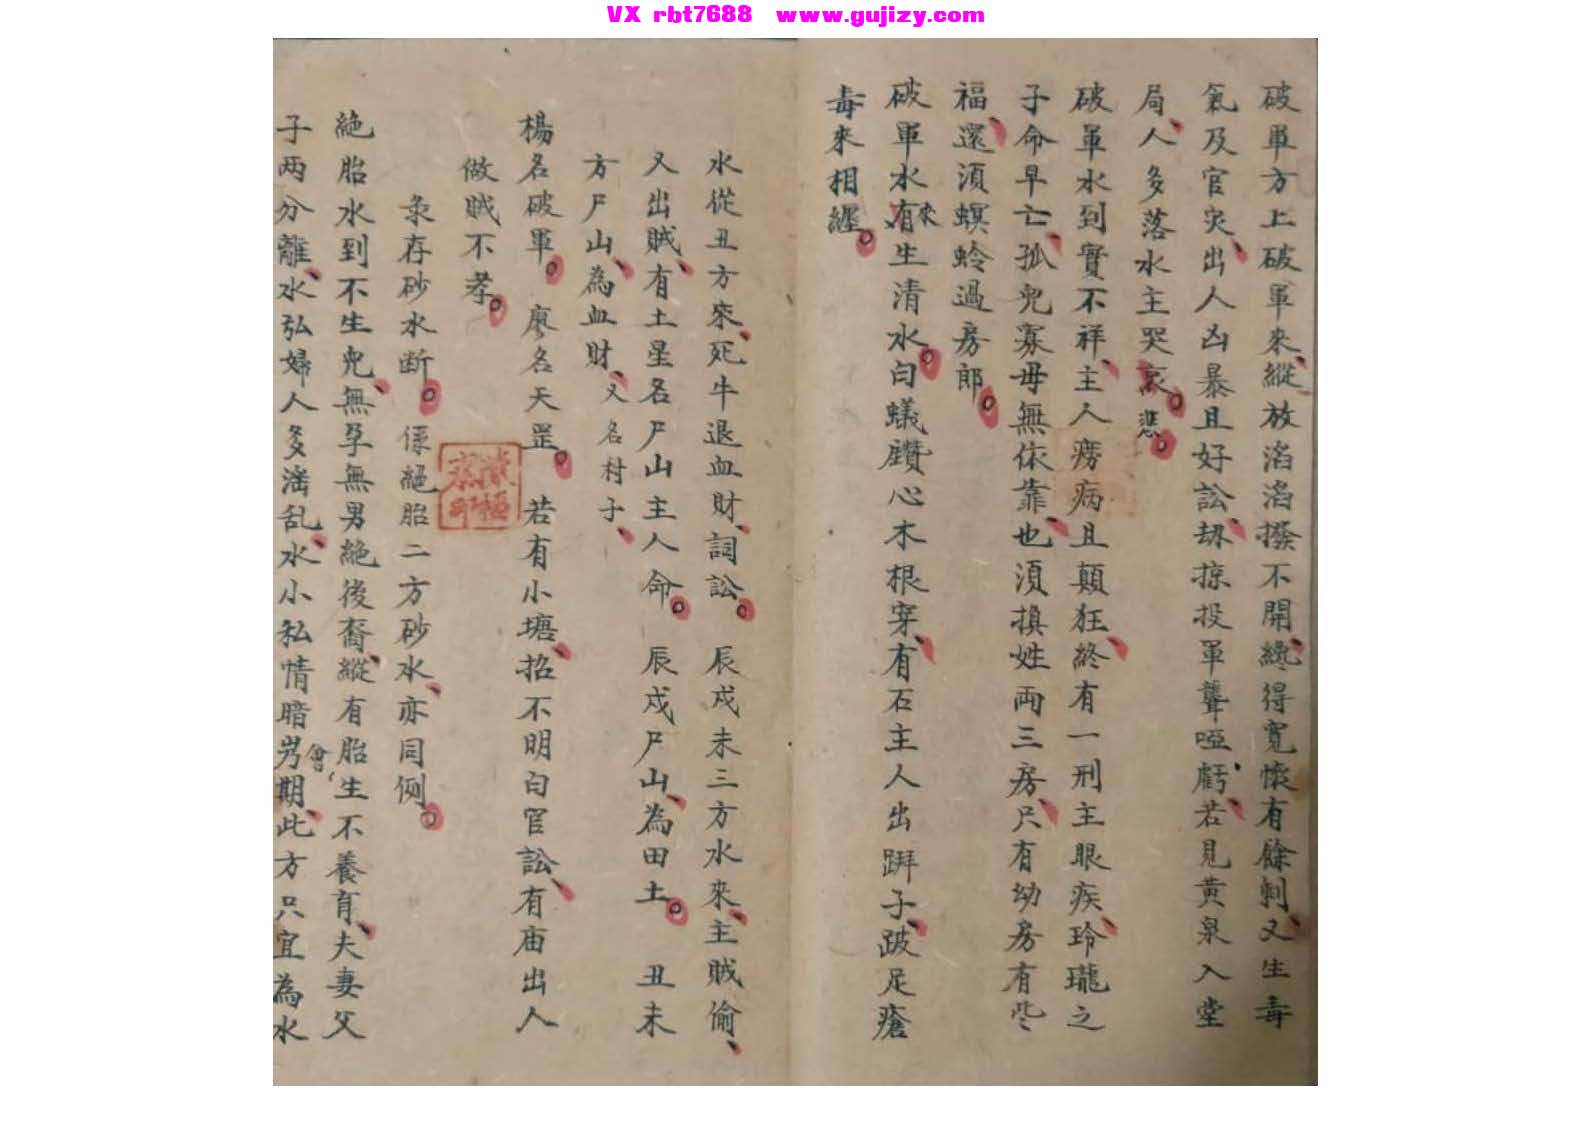 VX rbt7688 www.gujizy.com
破軍方上破軍來縱放滔滔撥不開纔得寬懷有餘剩又生毒
氣及官灾出人凶暴且好訟刼掠投軍聾啞虧若見黃泉入堂
局人多落水主哭哀悲
破軍水到實不祥主人癆病且顛狂終有一刑主眼疾玲瓏之
子命早亡孤兒寡毋無依靠也須換姓両三房只有幼房有些
福還須螟蛉過房郎
破軍水有來生清水白蟻鑽心木根穿有石主人出跰子跛足瘡
毒來相纏
水從丑方來死牛退血財詞訟 辰戍未三方水來主賊偷
又出賊有土星名尸山主人命 辰戍尸山為田土 丑未
方尸山為血財又名村子
楊名破軍 廖名天罡 若有小塘招不明白官訟有庙出人
做賊不孝
彔存砂水断 係絕胎二方砂水亦同例
絕胎水到不生兒無孕無男絕後裔縱有胎生不養育夫妻父
子两分離水弘婦人多淫乱水小私情暗會期此方只宜為水